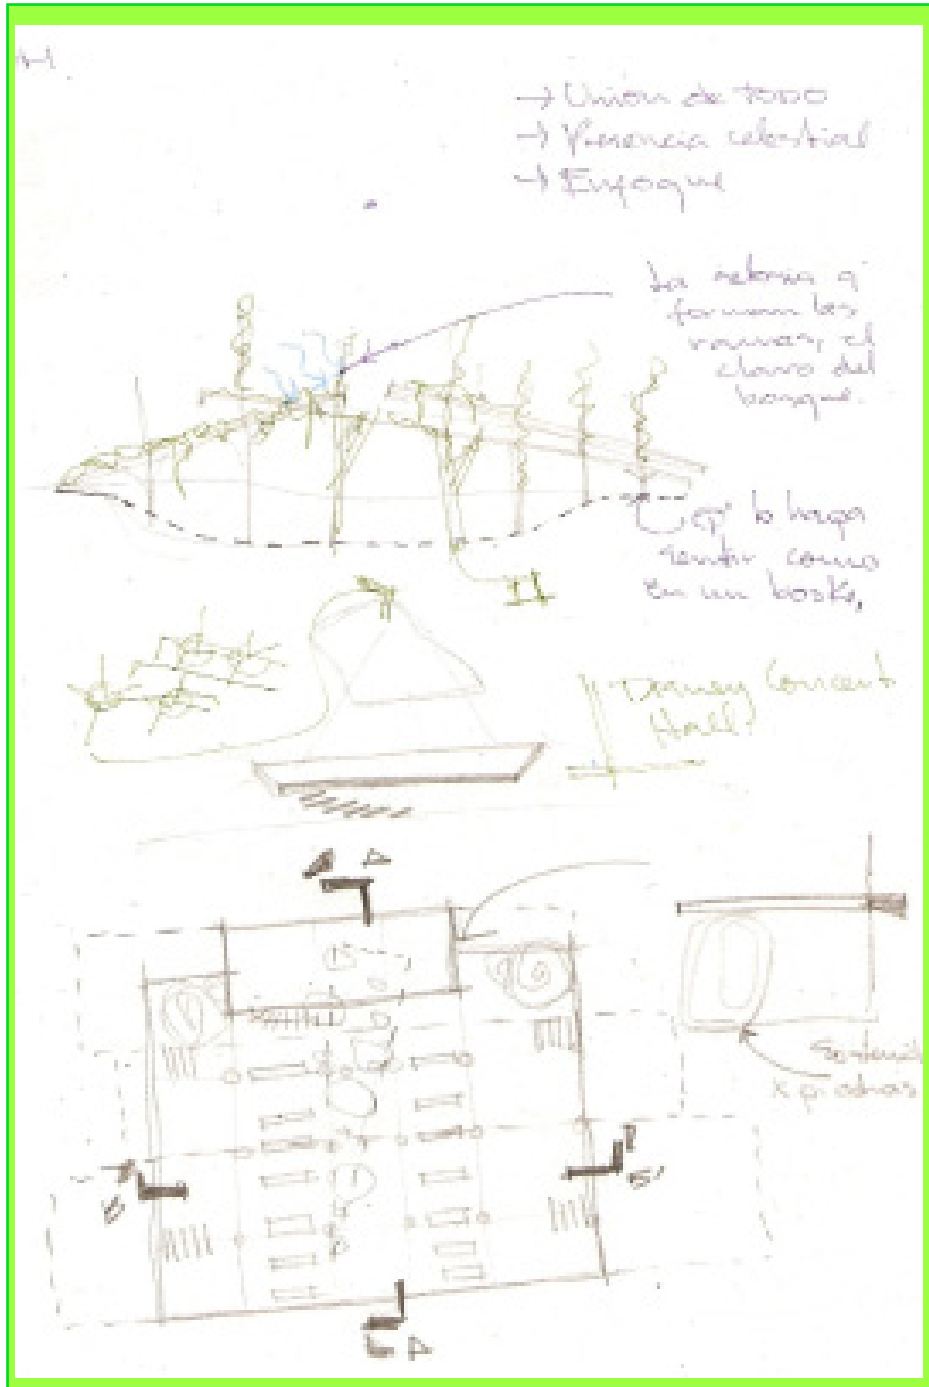 → Unión de TODO
→ Presencia celestial
→ Enfoque
La retoria q'
forman las
ramas, el
claro del
bosque.
q' lo haga
sentir como
en un boske,
Disney Concert
Hall?
A A
Sostenid
x piedras
B
B'
A